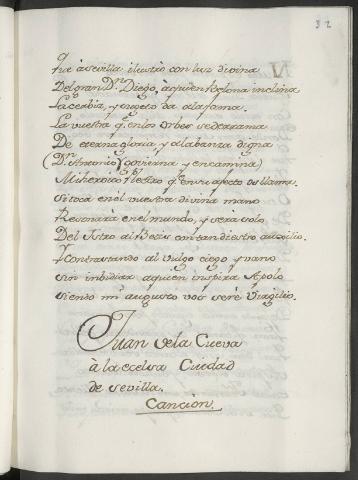 32
Que à sevilla ilustró con luz divina
Del gran Dn. Diego, à quien Felona inclina
La cerbiz, y sugeto da ala fama.
La vuestra qe. enlos orbes se derrama
De eterna gloria, y alabanza digna
(Dn. Antonio) govierna y encamina
Mi heroico Plectro qe. en su afecto os llama.
Si toca en el vuestra divina mano
Resonará en el mundo, y será solo
Del Istro al Betis con tan diestro auxilio.
Y contrastando al vulgo ciego y vano
sin inbidiar aquien inspira Apolo
siendo mi augusto vos seré Virgilio.
Juan dela Cueva
à la ecelsa Ciudad
de Sevilla.
Cancion.